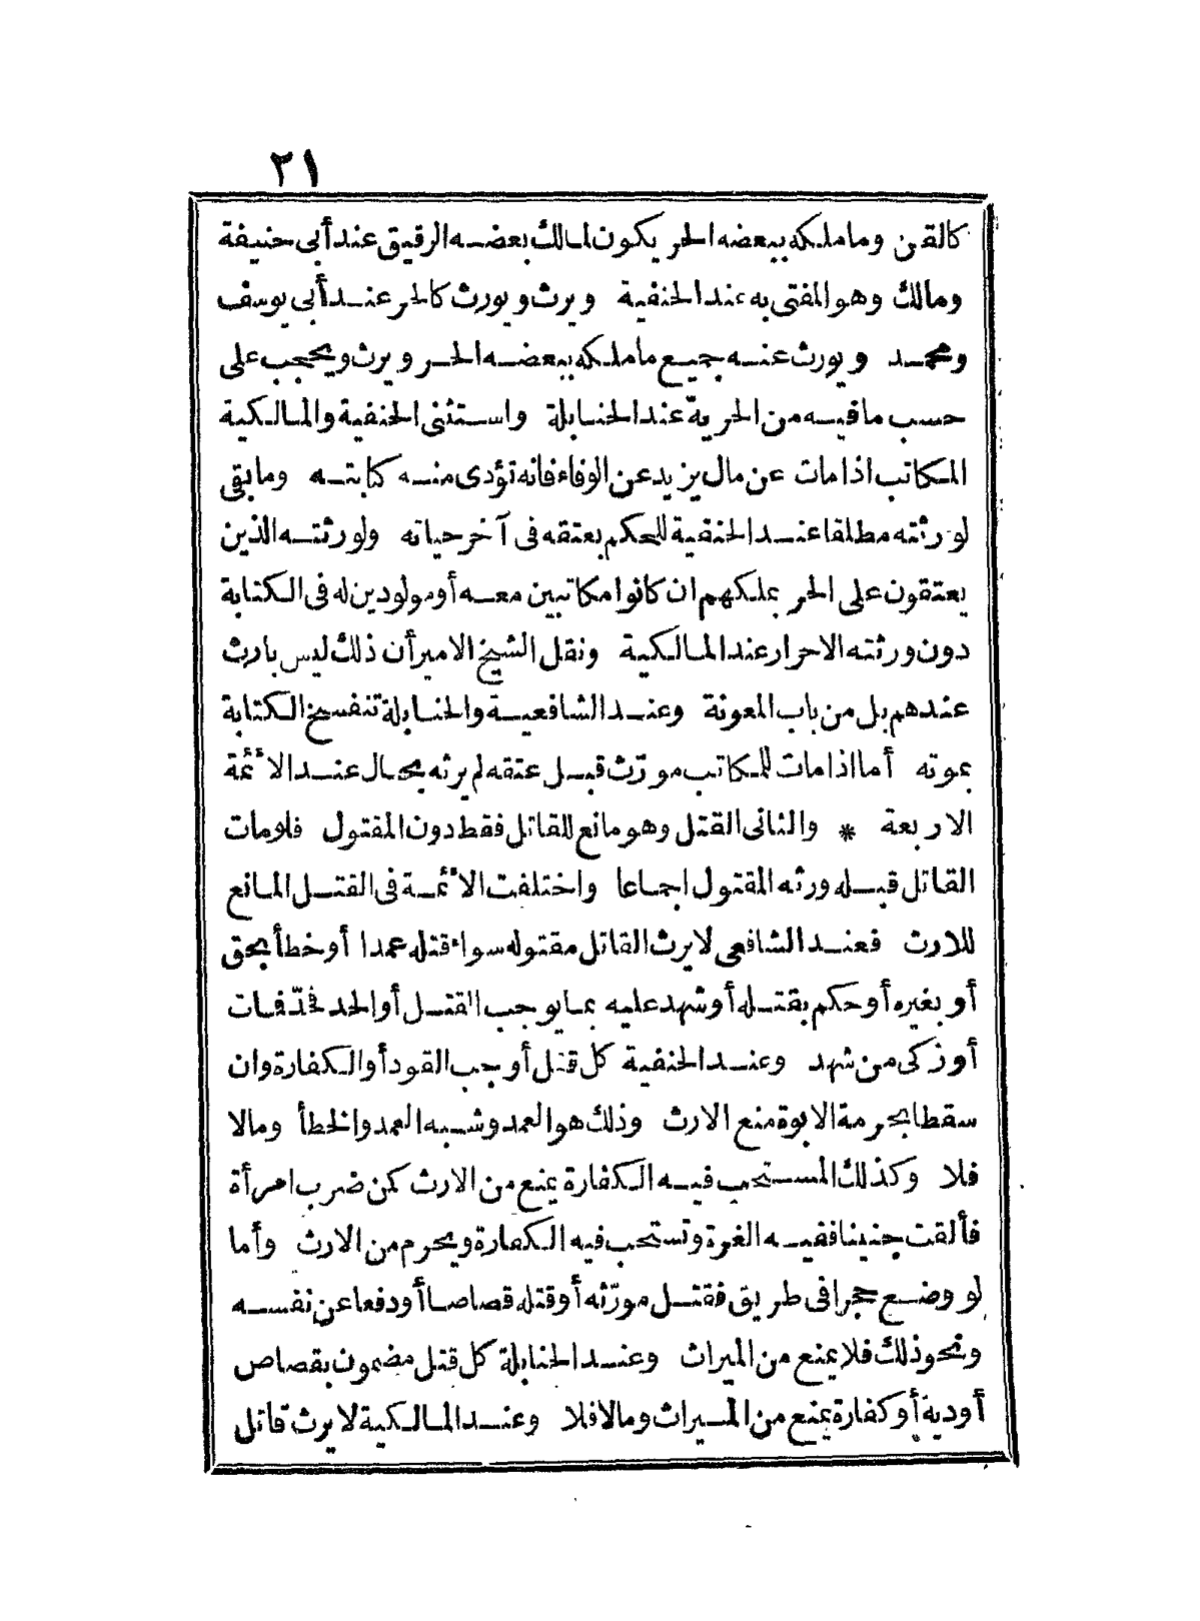 ٢١
كالقن وما ملكه ببعضه الحر يكون لمالك بعضه الرقيق عند أبى حنيفة
ومالك وهو المفتى به عند الحنفية ويرث ويورث كالحر عند أبى يوسف
ومحمد ويورث عنه جميع ما ملكه ببعضه الحر ويرث ويحجب على
حسب ما فيه من الحرية عند الحنابلة واستثنى الحنفية والمالكية
المكاتب اذا مات عن مال يزيد عن الوفاء فانه تؤدى منه كتابته وما بقى
لورثته مطلقا عند الحنفية للحكم بعتقه فى آخر حياته ولورثته الذين
يعتقون على الحر بملكهم ان كانوا مكاتبين معه أو مولودين له فى الكتابة
دون ورثته الاحرار عند المالكية ونقل الشيخ الامير أن ذلك ليس بارث
عندهم بل من باب المعونة وعند الشافعية والحنابلة تنفسخ الكتابة
بموته أما اذا مات للمكاتب مورّث قبل عتقه لم يرثه بحال عند الأئمة
الاربعة * والثانى القتل وهو مانع للقاتل فقط دون المقتول فلو مات
القاتل قبله ورثه المقتول اجماعا واختلفت الأئمة فى القتل المانع
للارث فعند الشافعى لا يرث القاتل مقتوله سواء قتله عمدا أو خطأ بحق
أو بغيره أو حكم بقتله أو شهد عليه بما يوجب القتل أو الحد فحدّ فمات
أو زكى من شهد وعند الحنفية كل قتل أوجب القود أو الكفارة وان
سقطا بحرمة الابوة منع الارث وذلك هو العمد وشبه العمد والخطأ ومالا
فلا وكذلك المستحب فيه الكفارة يمنع من الارث كمن ضرب امرأة
فألقت جنينا ففيه الغرة وتستحب فيه الكفارة ويحرم من الارث وأما
لو وضع حجرا فى طريق فقتل مورّثه أو قتله قصاصا أو دفعا عن نفسه
ونحو ذلك فلا يمنع من الميراث وعند الحنابلة كل قتل مضمون بقصاص
أو دية أو كفارة يمنع من الميراث ومالا فلا وعند المالكية لا يرث قاتل